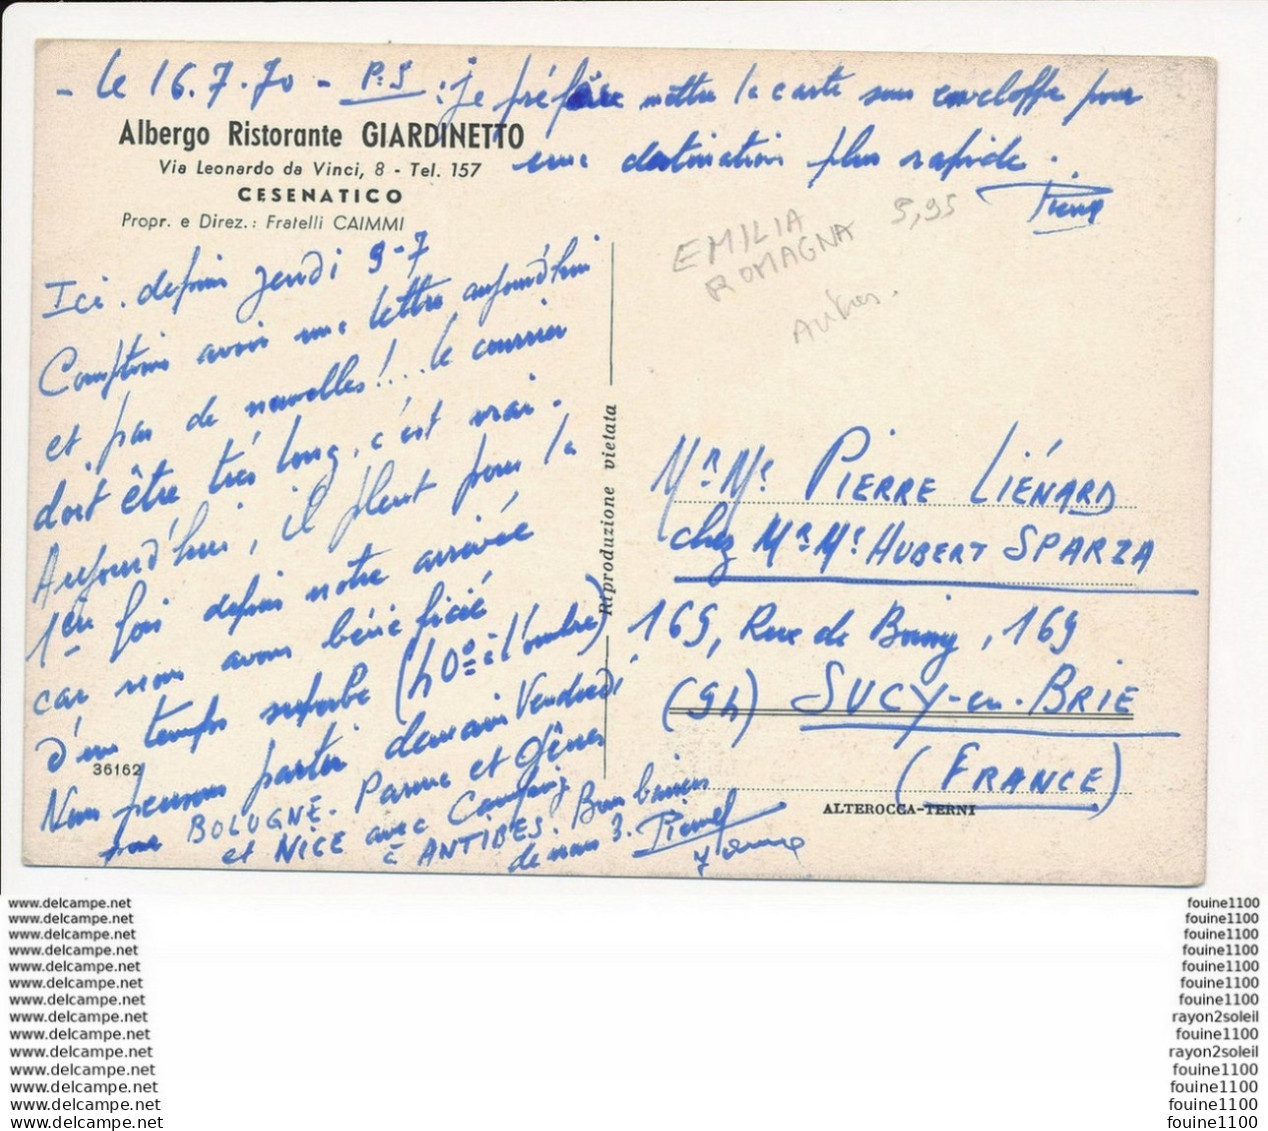 - le 16.7.70 - P.S : je préfère mettre la carte sous enveloppe pour
une destination plus rapide.
Pierre
Albergo Ristorante GIARDINETTO
Via Leonardo da Vinci, 8 - Tel. 157
CESENATICO
Propr. e Direz.: Fratelli CAIMMI
EMILIA
ROMAGNA
5,95
Autres.
Ici depuis jeudi 9-7
Comptions avoir une lettre aujourd'hui
et pas de nouvelles!... le courrier
doit être très long, c'est vrai.
Aujourd'hui, il pleut pour la
1ère fois depuis notre arrivée
car nous avons bénéficié
d'un temps superbe (40° à l'ombre)
Nous pensons partir demain Vendredi
pour BOLOGNE. Parme et Gênes
et NICE avec Camping
à ANTIBES. Bons baisers
de nous 3. Pierre
36162
Riproduzione vietata
Mr. Me. PIERRE LIÉNARD
chez Mr. Me. HUBERT SPARZA
169, Rue de Boissy, 169
(94) SUCY-en-BRIE
(FRANCE)
ALTEROCCA-TERNI
www.delcampe.net
www.delcampe.net
www.delcampe.net
www.delcampe.net
www.delcampe.net
www.delcampe.net
www.delcampe.net
www.delcampe.net
www.delcampe.net
www.delcampe.net
www.delcampe.net
www.delcampe.net
www.delcampe.net
www.delcampe.net
fouine1100
fouine1100
fouine1100
fouine1100
fouine1100
fouine1100
fouine1100
rayon2soleil
fouine1100
rayon2soleil
fouine1100
fouine1100
fouine1100
fouine1100